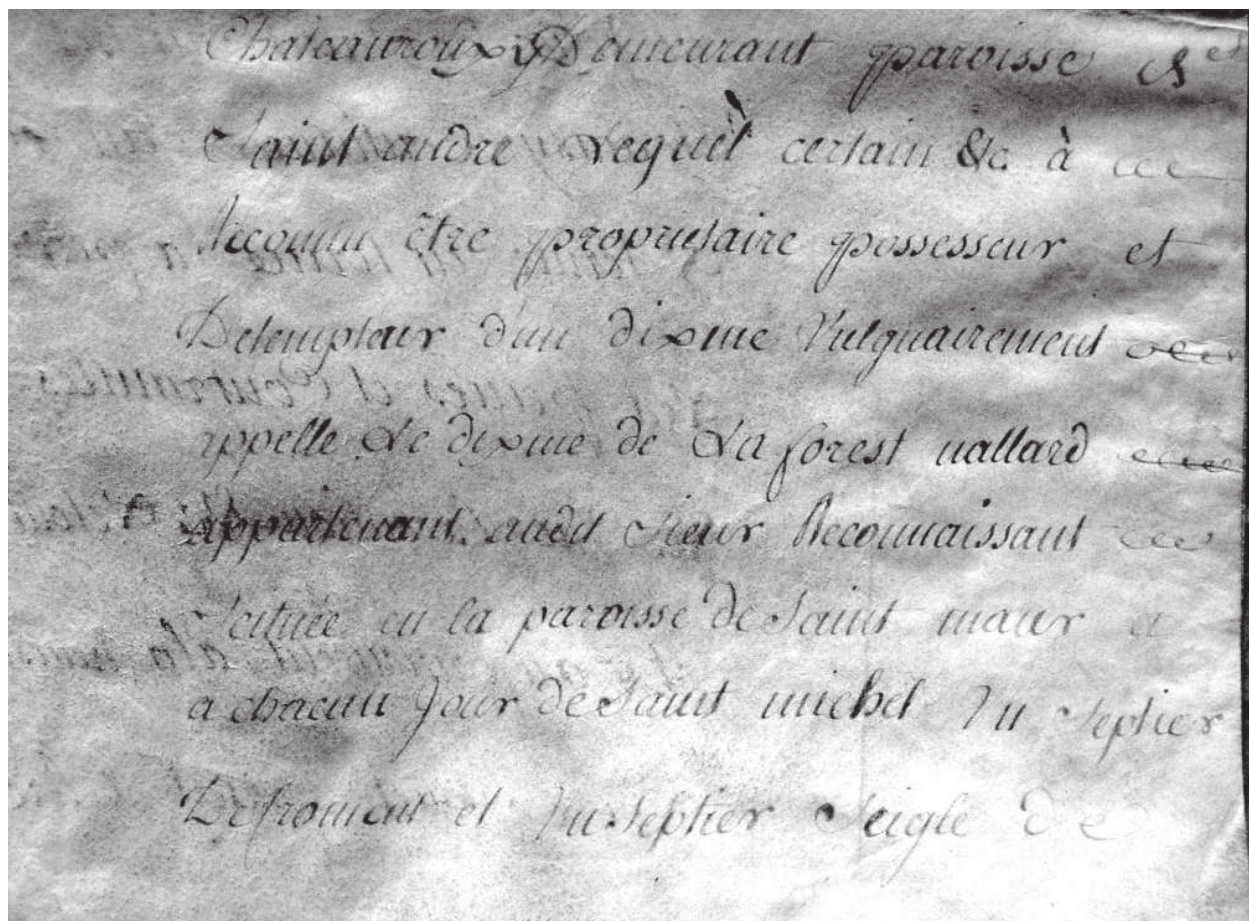 Chateauroux y Demeurant paroisse
Saint andre Lequel certain &c. à
Reconnu être propriétaire possesseur et
Detempteur d'un dixme Vulguairement
appellé Le dixme de La forest vallard
appartenant audit Sieur Reconnaissant
Scituée en la paroisse de Saint maur
a chacun Jour de Saint michel Vn Septier
De froment et Vn Septier Seigle de